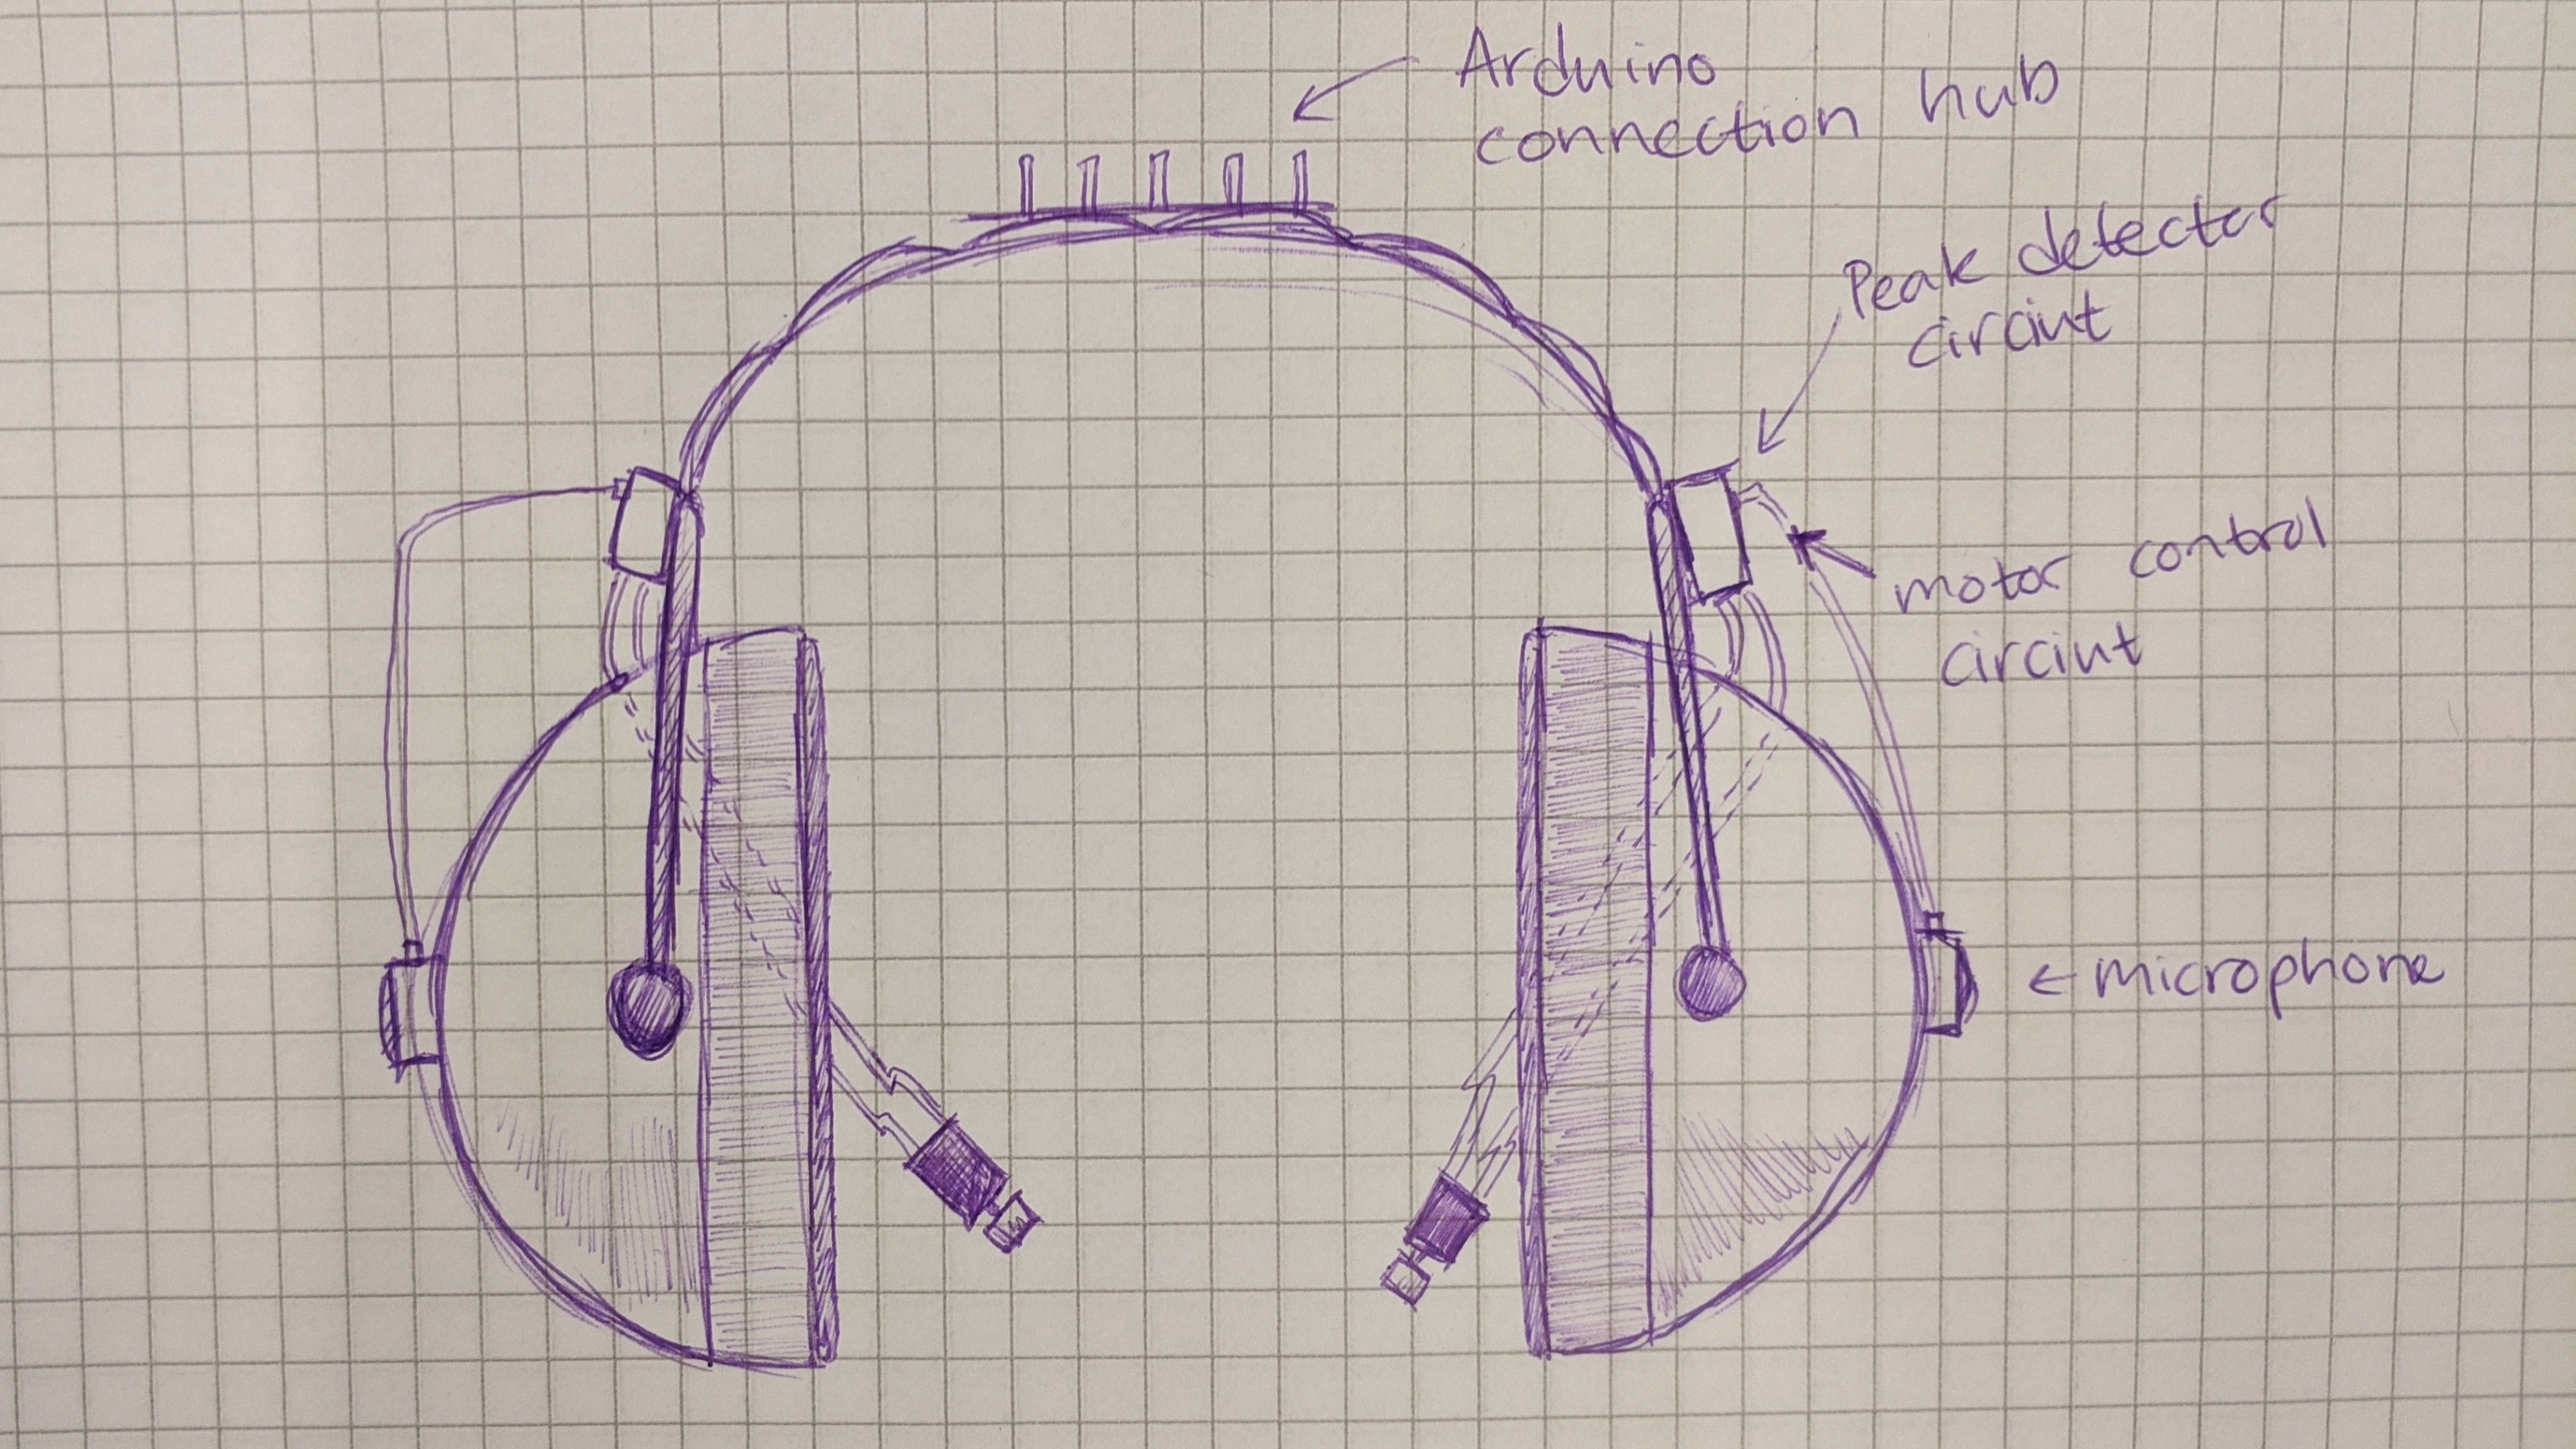 Arduino
connection hub
Peak detector
circiut
motor control
circiut
microphone